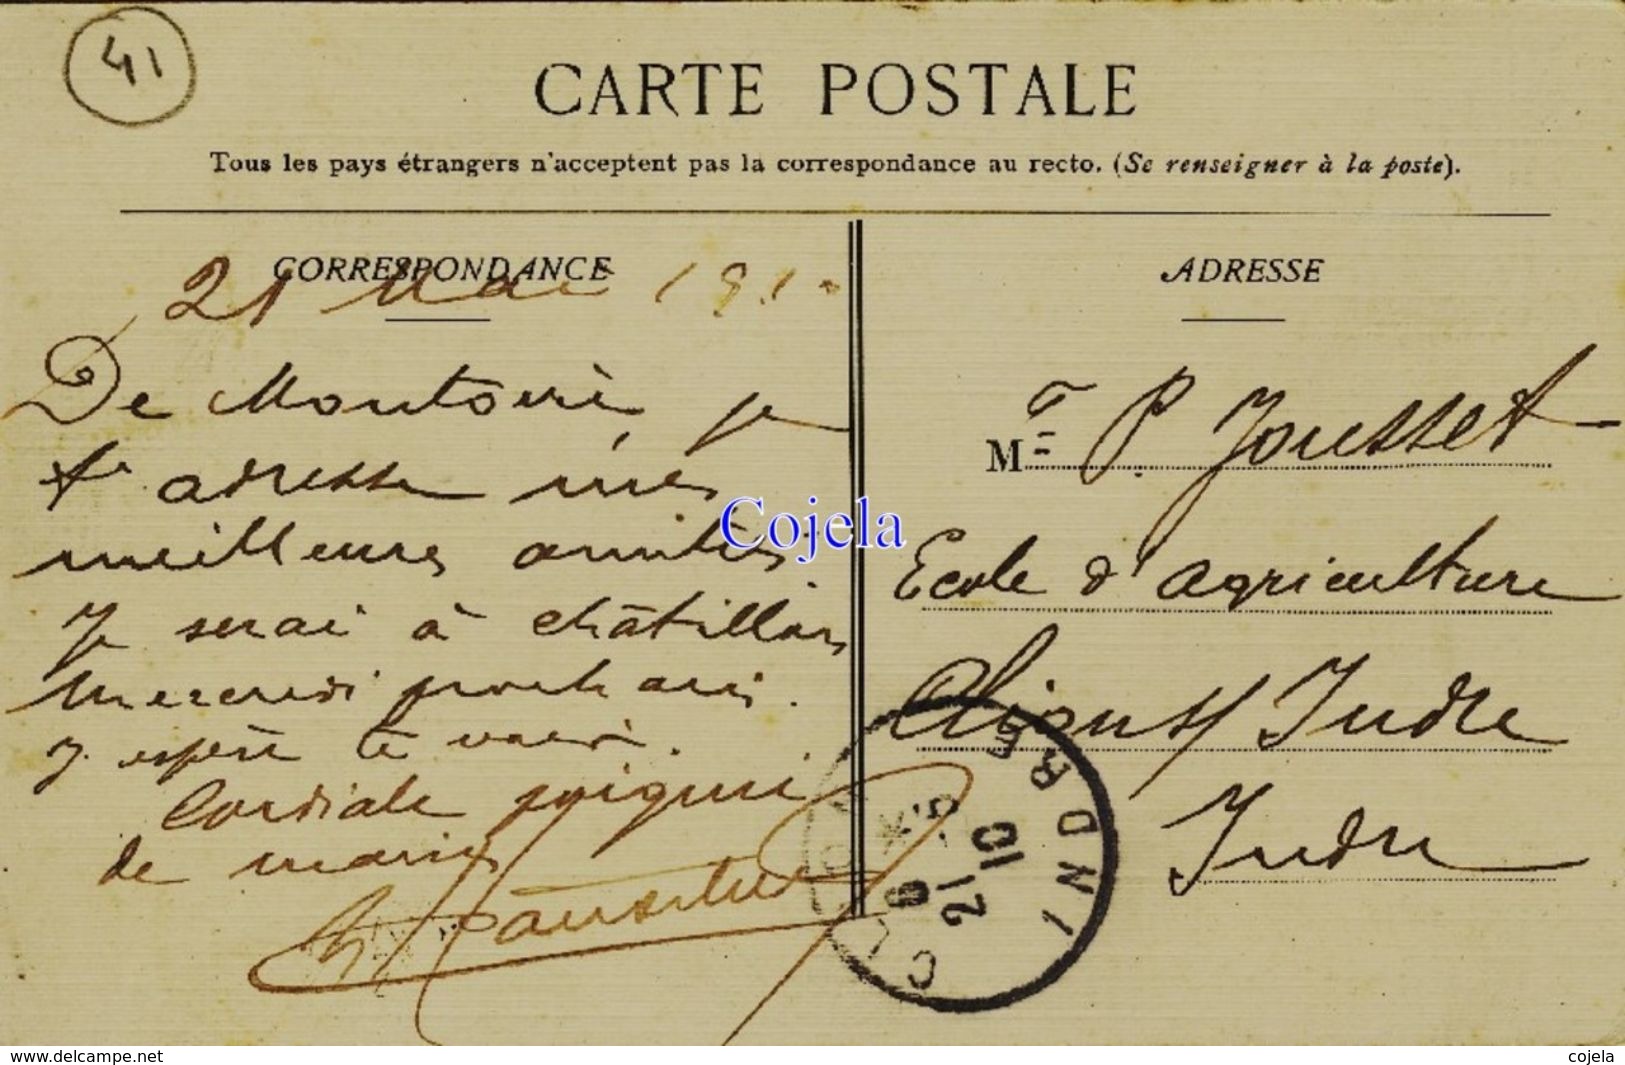 41
CARTE POSTALE
Tous les pays étrangers n'acceptent pas la correspondance au recto. (Se renseigner à la poste).
CORRESPONDANCE
21 Mai 191
De Montoire, je
t'adresse mes
meilleures amitiés
Je serai à châtillon
mercredi prochain.
J'espère te voir.
Cordiale poignée
de main
ADRESSE
Mr P. Jousset
Ecole d'agriculture
Clion s/ Indre
Indre
CLION INDRE
21
10
Cojela
www.delcampe.net
cojela